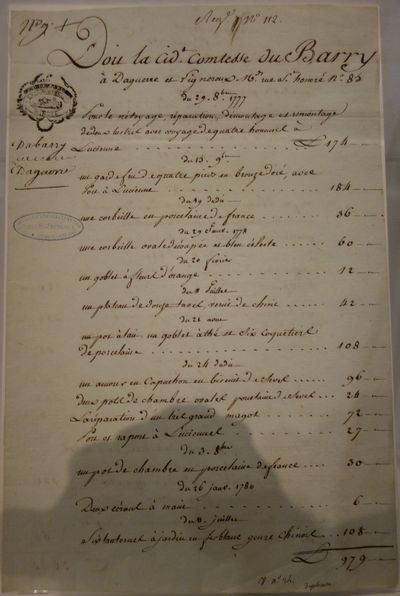 N° 112.
Doit la Cid.e Comtesse du Barry
à Daguerre et Lignereux M.ds rue S.t honoré N.° 85
du 29. 8bre 1777
Pour le nétoyage, réparation, démontage et remontage
de deux lustres avec voyage de quatre hommes à
Lucienne . . . 174
Dubarry
Daguerre
du 15. 9bre
un garde feu de quatre pieds en bronze doré, avec
Port à Lucienne . . . 184
du 19 dudit
une corbeille en porcelaine de france . . . 36
du 29 Janv. 1778
une corbeille ovale découpée et bleu céleste . . . 60
du 20 février
un goblet à fleurs d'orange . . . 12
du 11 Juillet
un plateau de douze tasses, vernis de chine . . . 42
du 21 aout
un pot à lait, un goblet à thé et Six Coquetiers
de porcelaine . . . 108
du 24 dudit
un amour en Capuchon en biscuit de Sèves . . . 96
deux pots de chambre ovales porcelaine de Sèves . . 24
La réparation d'un très grand magot . . . 72
Port et raport à Luciennes . . . 27
du 3. 8bre
un pot de chambre en porcelaine de france . . . 30
du 26 janv. 1780
Deux écrans à main . . . 6
du 11. juillet
Six lanternes à jardin en fer blanc genre Chinois . . 108
L 979